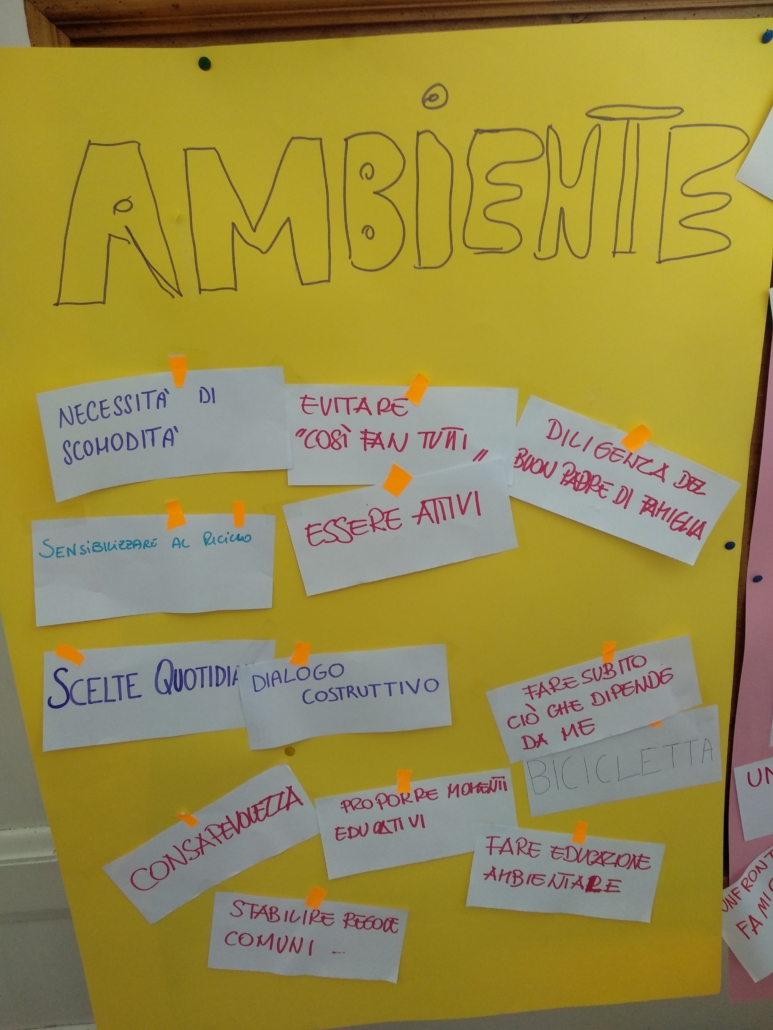 AMBIENTE
NECESSITA' DI
SCOMODITA'
EVITARE
"COSÌ FAN TUTTI"
DILIGENZA DEL
BUON PADRE DI FAMIGLIA
SENSIBILIZZARE AL RICICLO
ESSERE ATTIVI
SCELTE QUOTIDIA
DIALOGO
COSTRUTTIVO
FARE SUBITO
CIÒ CHE DIPENDE
DA ME
BICICLETTA
CONSAPEVOLEZZA
PROPORRE MOMENTI
EDUCATIVI
FARE EDUCAZIONE
AMBIENTALE
STABILIRE REGOLE
COMUNI -
UN
FAMIG